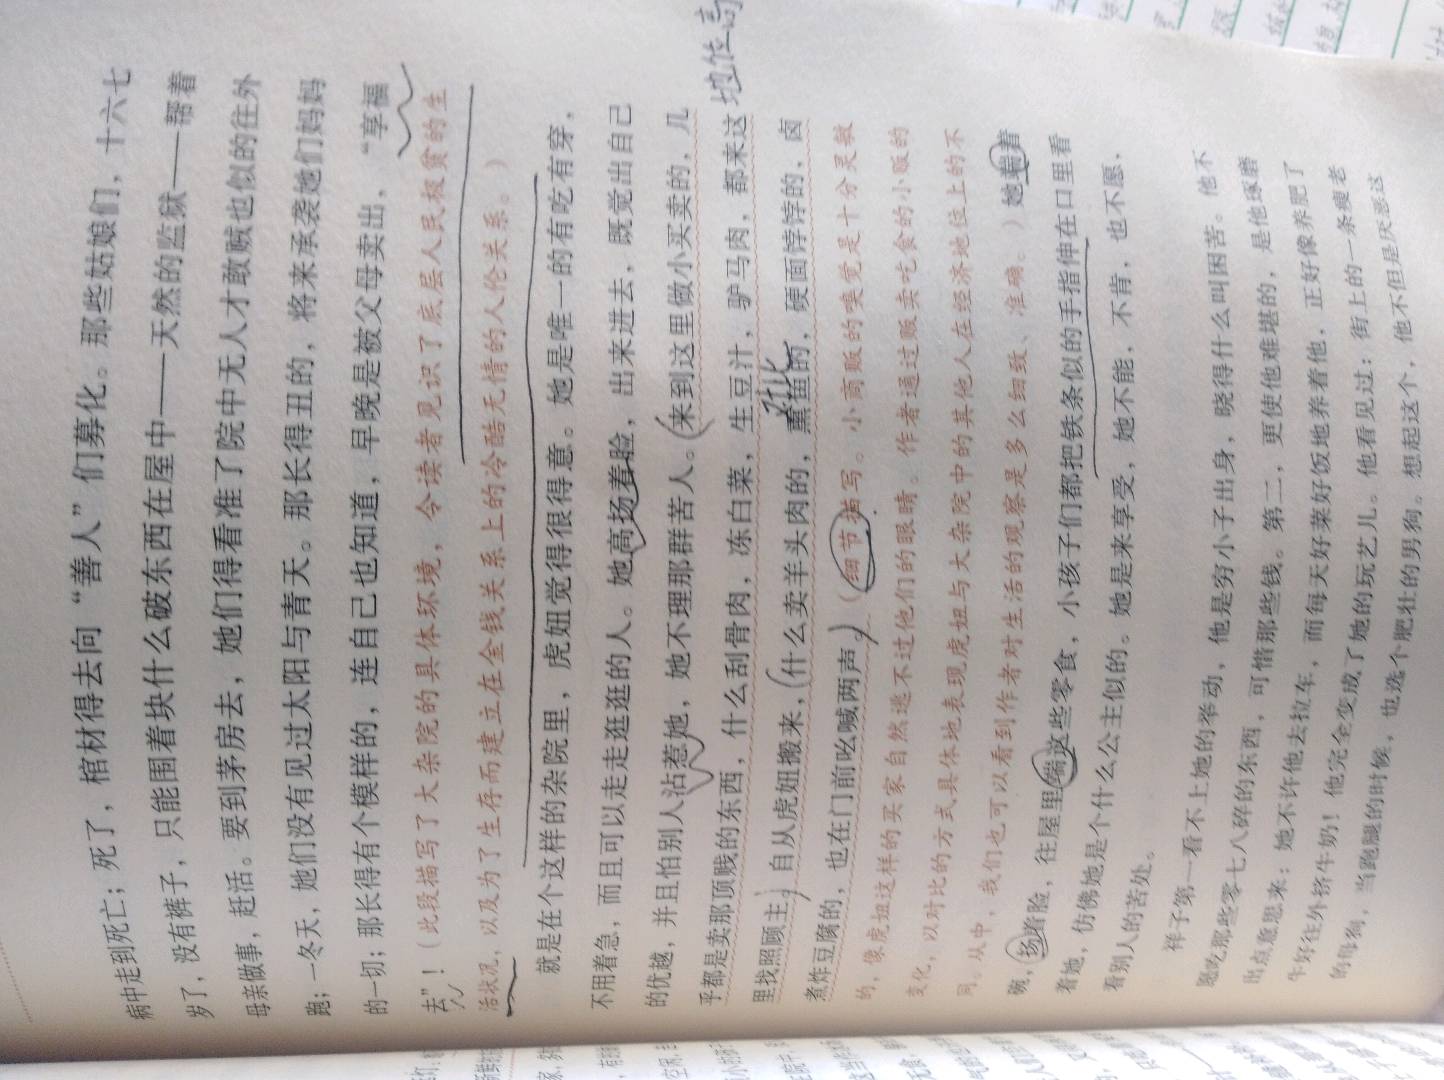 病中走到死亡；死了，棺材得去向“善人”们募化。那些姑娘们，十六七
岁了，没有裤子，只能围着块什么破东西在屋中——天然的监狱——帮着
母亲做事，赶活。要到茅房去，她们得看准了院中无人才敢贼也似的往外
跑；一冬天，她们没有见过太阳与青天。那长得丑的，将来承袭她们妈妈
的一切；那长得有个模样的，连自己也知道，早晚是被父母卖出，“享福
去”！（此段描写了大杂院的具体环境，令读者见识了底层人民极贫的生
活状况，以及为了生存而建立在金钱关系上的冷酷无情的人伦关系。）
就是在个这样的杂院里，虎妞觉得很得意。她是唯一的有吃有穿，
不用着急，而且可以走走逛逛的人。她高扬着脸，出来进去，既觉出自己
的优越，并且怕别人沾惹她，她不理那群苦人。（来到这里做小买卖的，几
地位高
乎都是卖那顶贱的东西，什么刮骨肉，冻白菜，生豆汁，驴马肉，都来这
里找照顾主；自从虎妞搬来，（什么卖羊头肉的，熏鱼的，硬面饽饽的，卤
煮炸豆腐的，也在门前吆喊两声）（细节描写。小商贩的嗅觉是十分灵敏
的，像虎妞这样的买家自然逃不过他们的眼睛。作者通过贩卖吃食的小贩的
变化，以对比的方式具体地表现虎妞与大杂院中的其他人在经济地位上的不
同。从中，我们也可以看到作者对生活的观察是多么细致、准确。）她端着
碗，扬着脸，往屋里端这些零食，小孩子们都把铁条似的手指伸在口里看
着她，仿佛她是个什么公主似的。她是来享受，她不能，不肯，也不愿，
看别人的苦处。
祥子第一看不上她的举动，他是穷小子出身，晓得什么叫困苦。他不
愿吃那些零七八碎的东西，可惜那些钱。第二，更使他难堪的，是他琢磨
出点意思来：她不许他去拉车，而每天好菜好饭地养着他，正好像养肥了
牛好往外挤牛奶！他完全变成了她的玩艺儿。他看见过：街上的一条瘦老
的母狗，当跑腿的时候，也选个肥壮的男狗。想起这个，他不但是厌恶这